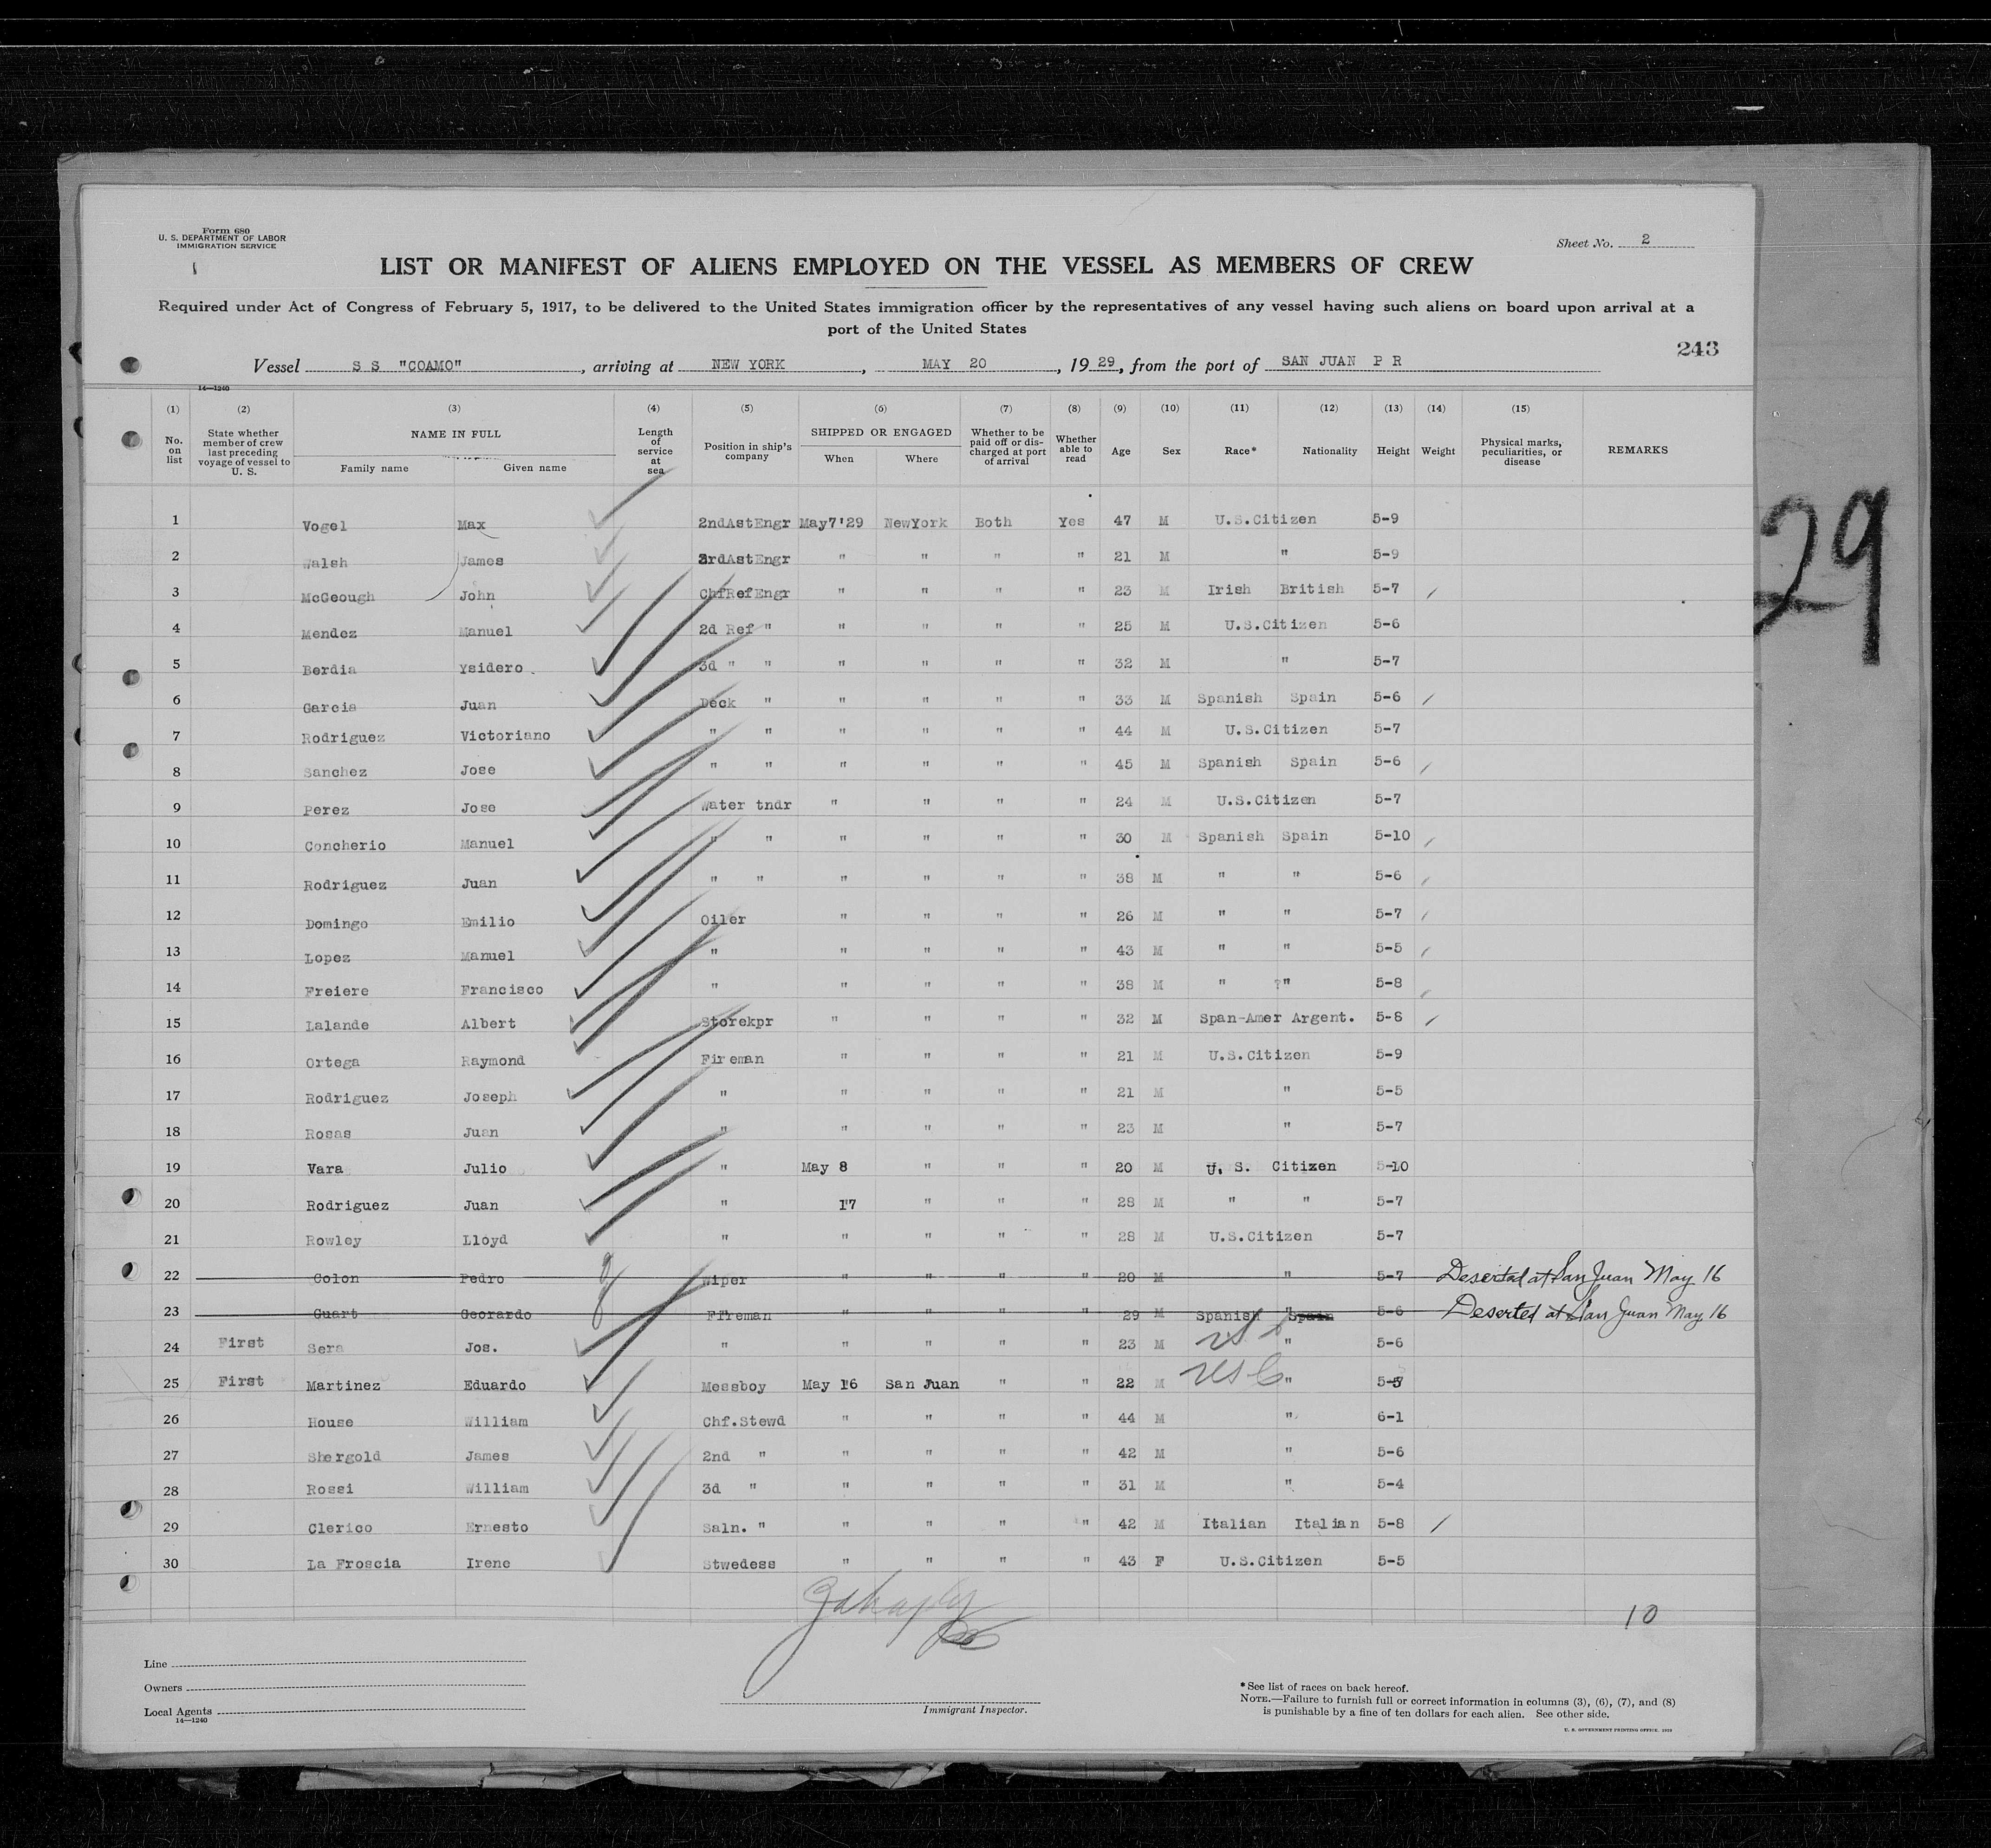 Form 680
U. S. DEPARTMENT OF LABOR
IMMIGRATION SERVICE
Sheet No. 2
LIST OR MANIFEST OF ALIENS EMPLOYED ON THE VESSEL AS MEMBERS OF CREW
Required under Act of Congress of February 5, 1917, to be delivered to the United States immigration officer by the representatives of any vessel having such aliens on board upon arrival at a
port of the United States
243
Vessel S S "COAMO", arriving at NEW YORK, MAY 20, 1929, from the port of SAN JUAN P R
14—1240
(1) (2) (3) (4) (5) (6) (7) (8) (9) (10) (11) (12) (13) (14) (15)
No. on list State whether member of crew last preceding voyage of vessel to U. S. NAME IN FULL Family name Given name Length of service at sea Position in ship's company SHIPPED OR ENGAGED When Where Whether to be paid off or discharged at port of arrival Whether able to read Age Sex Race* Nationality Height Weight Physical marks, peculiarities, or disease REMARKS
1 Vogel Max 2ndAstEngr May7'29 NewYork Both Yes 47 M U.S.Citizen 5-9
2 Walsh James 3rdAstEngr " " " " 21 M " 5-9
3 McGeough John ChfRefEngr " " " " 23 M Irish British 5-7
4 Mendez Manuel 2d Ref " " " " " 25 M U.S.Citizen 5-6
5 Berdia Ysidero 3d " " " " " " 32 M " 5-7
6 Garcia Juan Deck " " " " " 33 M Spanish Spain 5-6
7 Rodriguez Victoriano " " " " " " 44 M U.S.Citizen 5-7
8 Sanchez Jose " " " " " " 45 M Spanish Spain 5-6
9 Perez Jose Water tndr " " " " 24 M U.S.Citizen 5-7
10 Concherio Manuel " " " " " " 30 M Spanish Spain 5-10
11 Rodriguez Juan " " " " " " 38 M " " 5-6
12 Domingo Emilio Oiler " " " " 26 M " " 5-7
13 Lopez Manuel " " " " " 43 M " " 5-5
14 Freiere Francisco " " " " " 38 M " " 5-8
15 Lalande Albert Storekpr " " " " 32 M Span-Amer Argent. 5-6
16 Ortega Raymond Fireman " " " " 21 M U.S.Citizen 5-9
17 Rodriguez Joseph " " " " " 21 M " 5-5
18 Rosas Juan " " " " " 23 M " 5-7
19 Vara Julio " May 8 " " " 20 M U. S. Citizen 5-10
20 Rodriguez Juan " 17 " " " 28 M " " 5-7
21 Rowley Lloyd " " " " " 28 M U.S.Citizen 5-7
22 Colon Pedro Wiper " " " " 20 M " 5-7 Deserted at San Juan May 16
23 Guart Georardo Fireman " " " " 29 M Spanish " Spain 5-6 Deserted at San Juan May 16
24 First Sera Jos. " " " " " 23 M " 5-6
25 First Martinez Eduardo Messboy May 16 San Juan " " 22 M USC " 5-5
26 House William Chf.Stewd " " " " 44 M " 6-1
27 Shergold James 2nd " " " " " 42 M " 5-6
28 Rossi William 3d " " " " " 31 M " 5-4
29 Clerico Ernesto Saln. " " " " " 42 M Italian Italian 5-8
30 La Froscia Irene Stwedess " " " " 43 F U.S.Citizen 5-5
10
Line
Owners
Local Agents
14—1240
Immigrant Inspector.
*See list of races on back hereof.
NOTE.—Failure to furnish full or correct information in columns (3), (6), (7), and (8)
is punishable by a fine of ten dollars for each alien. See other side.
U. S. GOVERNMENT PRINTING OFFICE
29